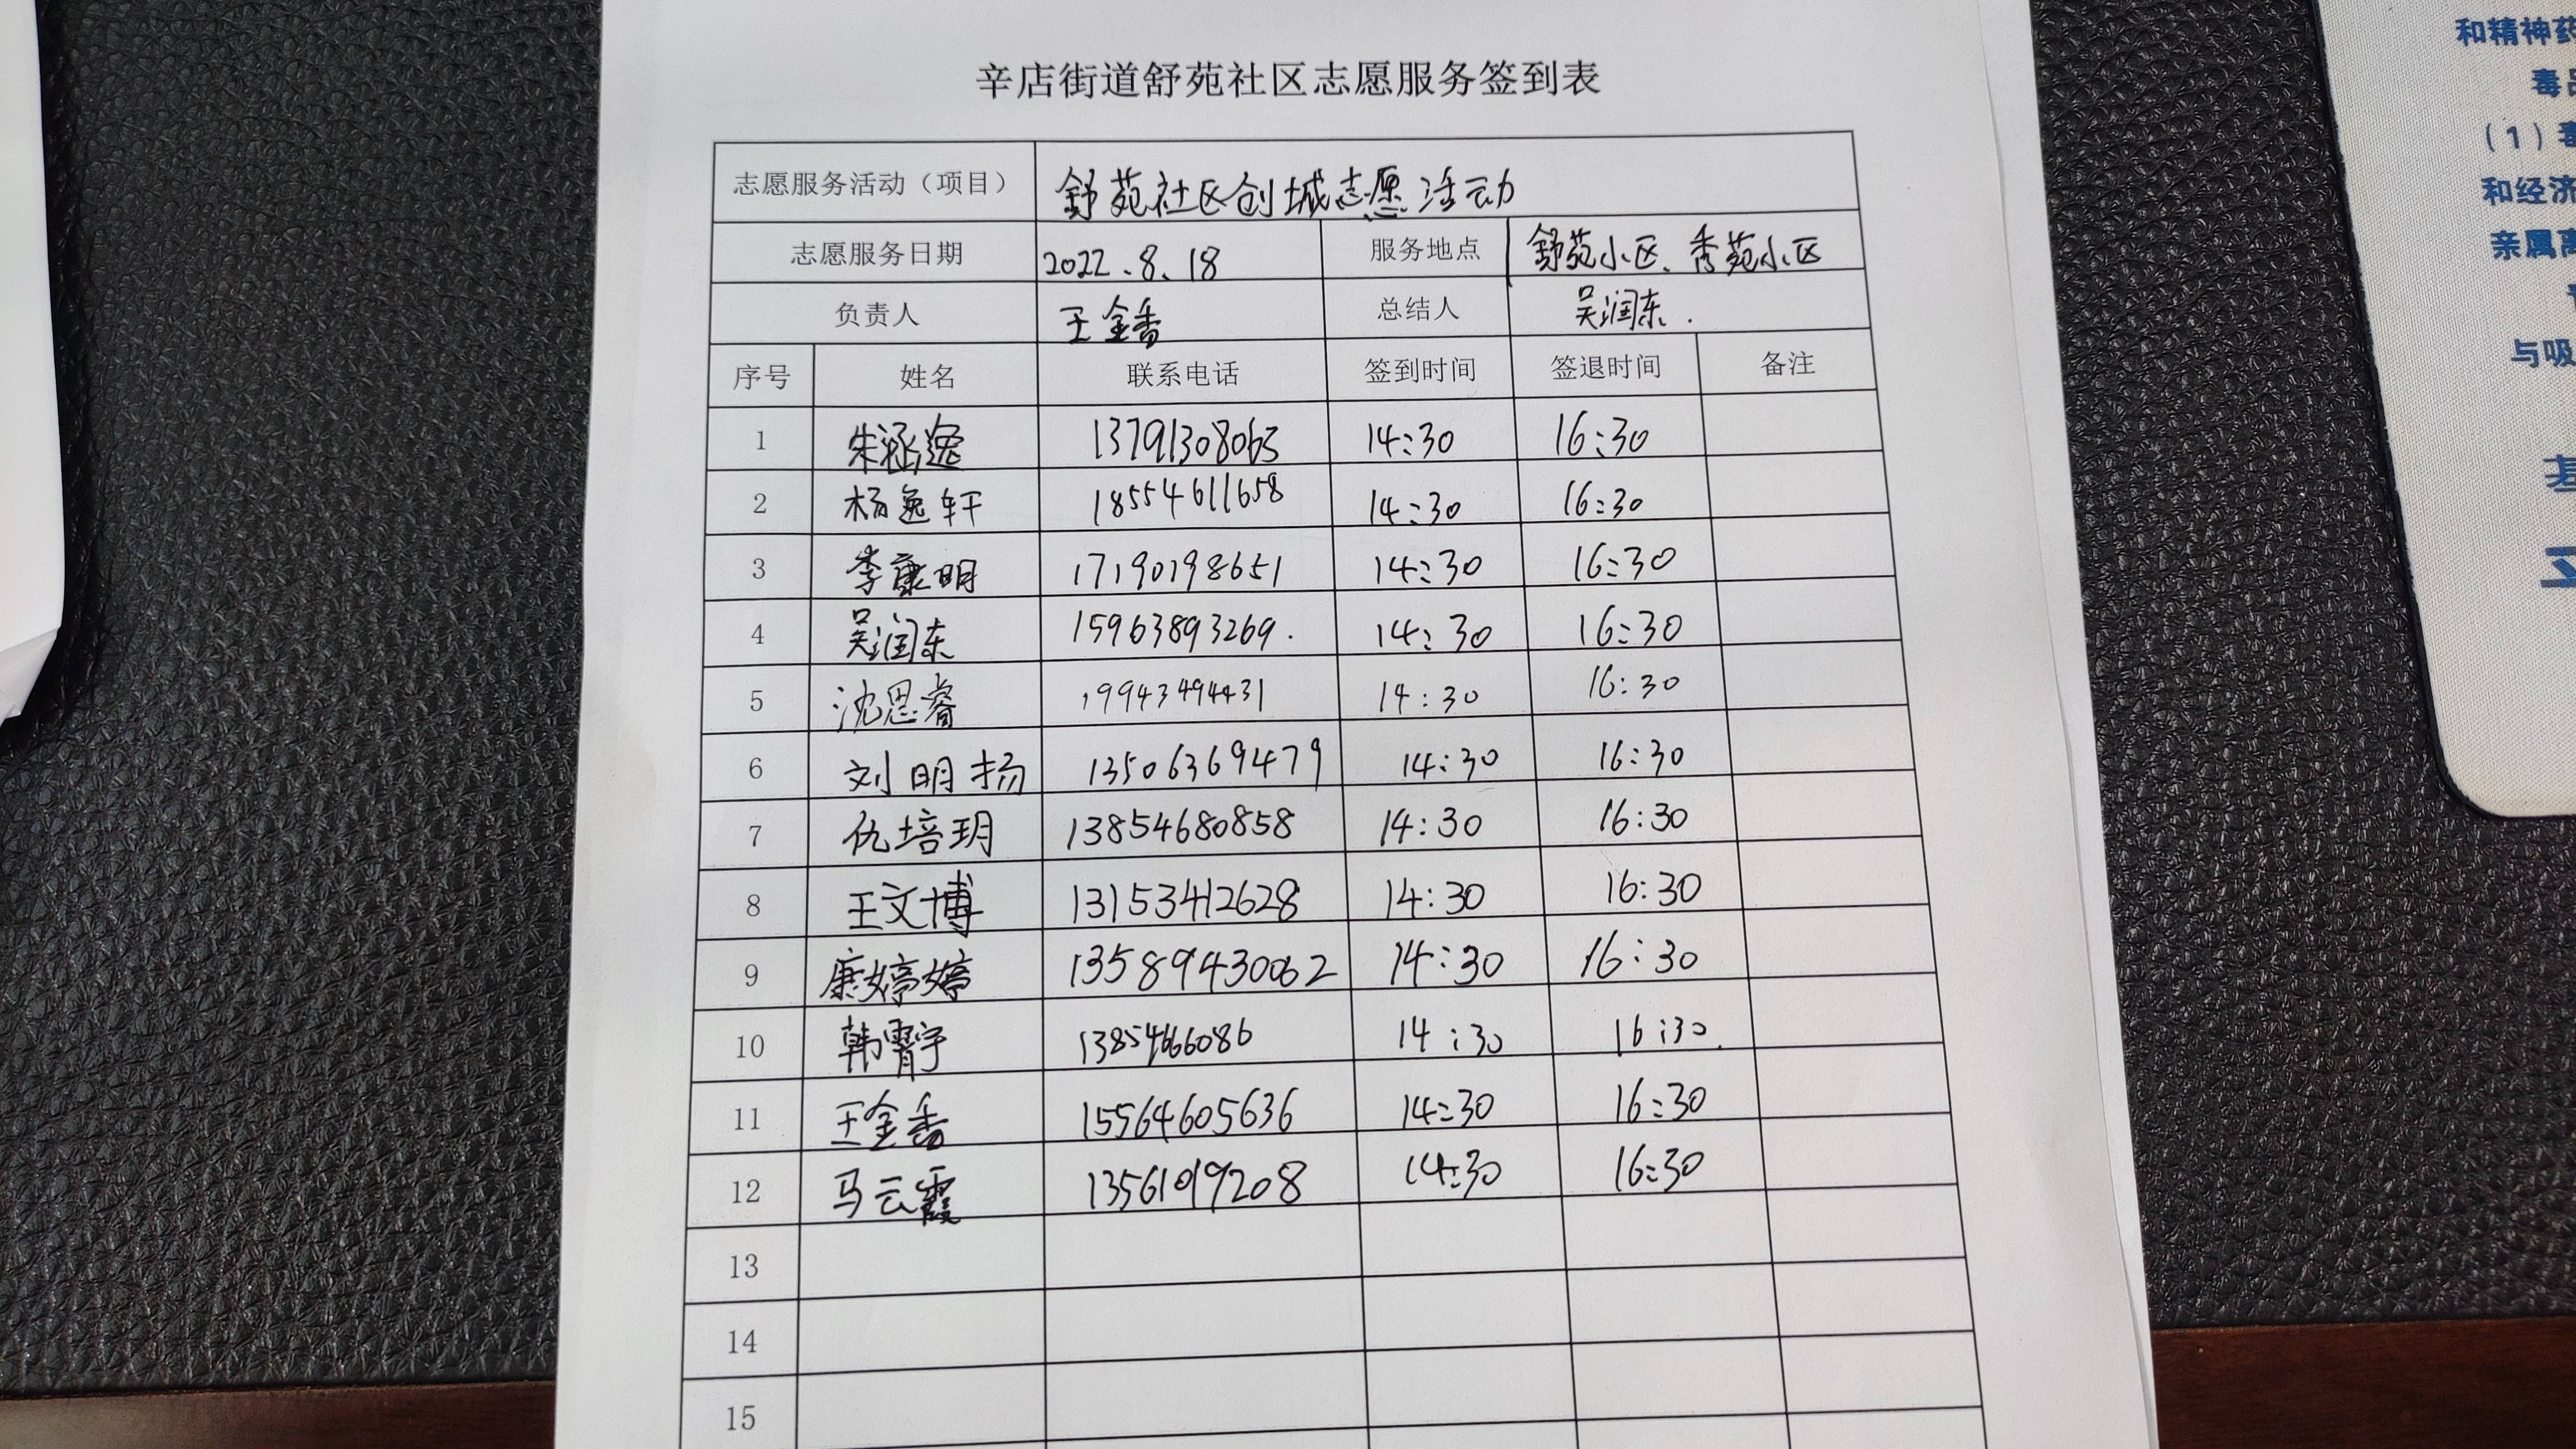 辛店街道舒苑社区志愿服务签到表
志愿服务活动（项目） 舒苑社区创城志愿活动
志愿服务日期 2022.8.18 服务地点 舒苑小区、秀苑小区
负责人 王金香 总结人 吴润东.
序号 姓名 联系电话 签到时间 签退时间 备注
1 朱涵逸 13791308063 14:30 16:30
2 杨逸轩 18554611658 14:30 16:30
3 李康明 17190198651 14:30 16:30
4 吴润东 15963893269. 14:30 16:30
5 沈思睿 19943494431 14:30 16:30
6 刘明扬 13506369479 14:30 16:30
7 仇培玥 13854680858 14:30 16:30
8 王文博 13153412628 14:30 16:30
9 康婷婷 13589430062 14:30 16:30
10 韩霄宇 14:30 16:30.
11 王金香 15564605636 14:30 16:30
12 马云霞 13561019208 14:30 16:30
13
14
15
和精神药
（1）
和经济
亲属离
与吸